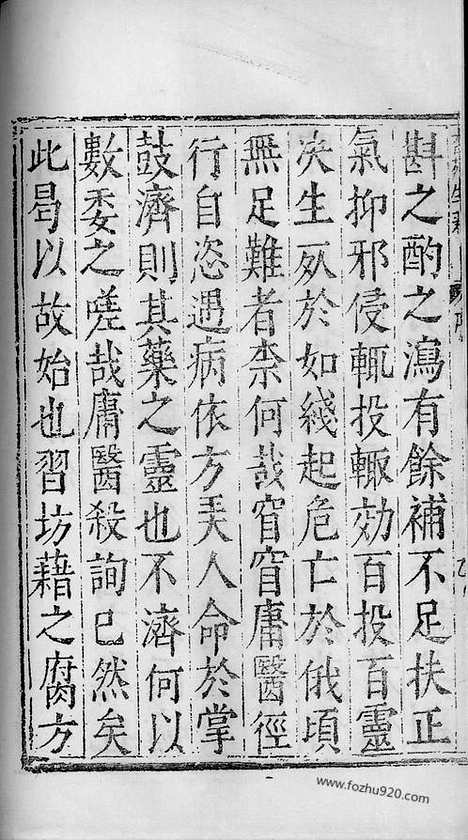 斟之酌之瀉有餘補不足扶正
氣抑邪侵輒投輙効百投百靈
决生死於如綫起危亡於俄頃
無足難者柰何哉窅窅庸醫徑
行自恣遇病依方弄人命於掌
鼓濟則其藥之靈也不濟何以
數委之嗟哉庸醫殺詢已然矣
此曷以故始也習坊藉之腐方
www.fozhu920.com